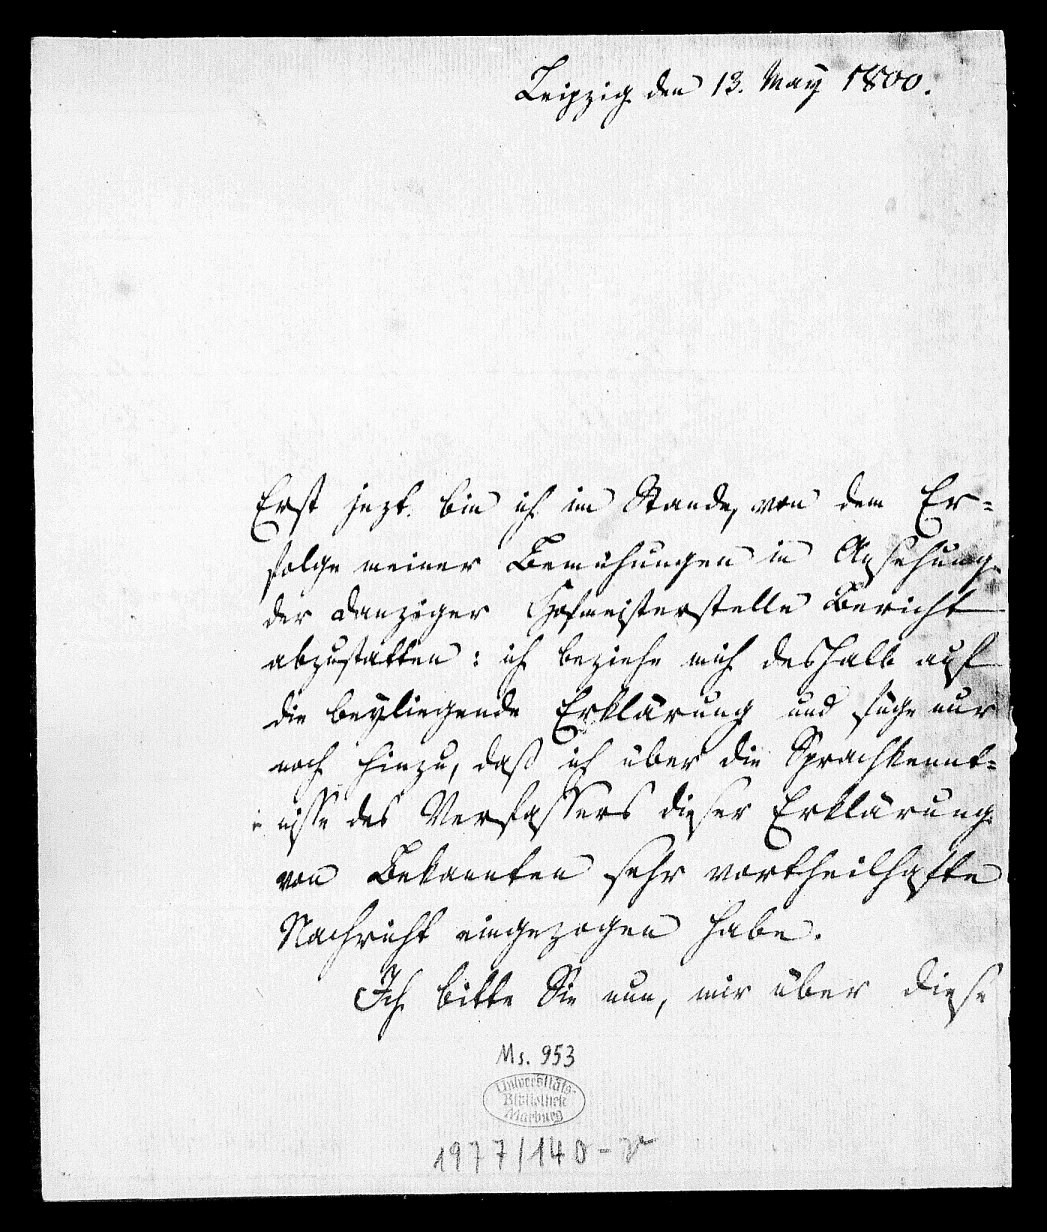 Leipzig den 13. May 1800.
Erst jezt bin ich im Stande, von dem Er-
folge meiner Bemühungen in Ansehung
der Danziger Hofmeisterstelle Bericht
abzustatten: ich beziehe mich deshalb auf
die beyliegende Erklärung und füge nur
noch hinzu, daß ich über die Sprachkennt-
nisse des Verfassers dieser Erklärung
von Bekannten sehr vortheilhafte
Nachricht eingezogen habe.
Ich bitte Sie nun, mir über diese
Ms. 953
Universitäts-
Bibliothek
Marburg
1977/140-